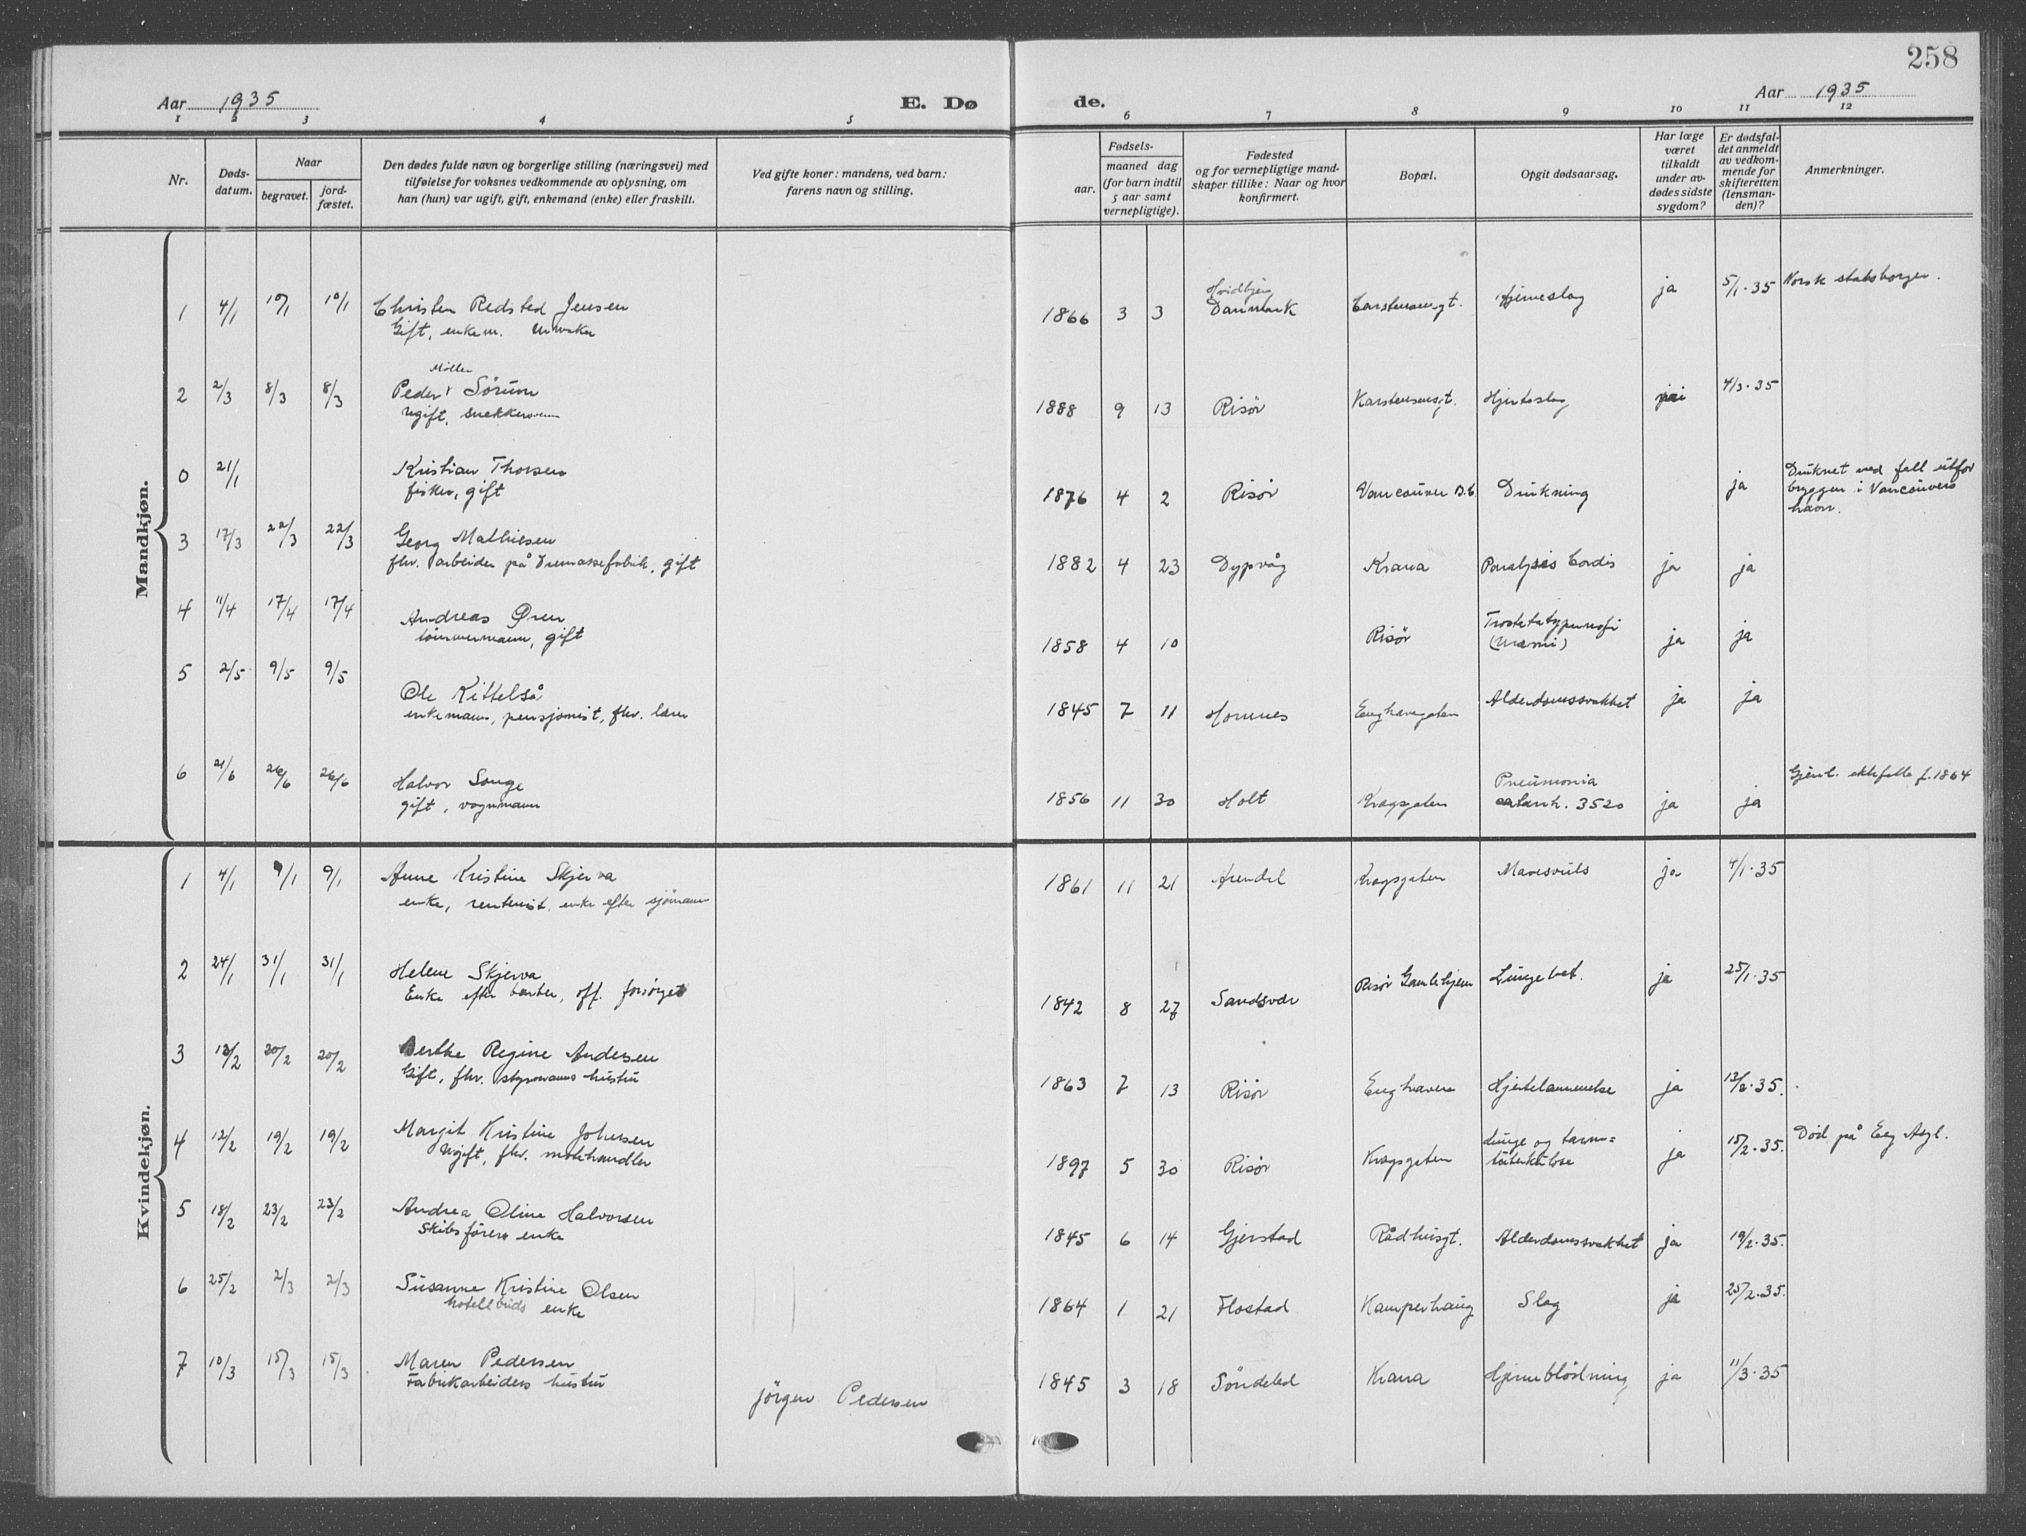 258
Aar 1935
E. Døde.
Aar 1935
1 2 3 4 5 6 7 8 9 10 11 12
Nr.
Døds-
datum.
Naar
begravet.
jord-
fæstet.
Den dødes fulde navn og borgerlige stilling (næringsvei) med
tilføielse for voksnes vedkommende av oplysning, om
han (hun) var ugift, gift, enkemand (enke) eller fraskilt.
Ved gifte koner: mandens, ved barn:
farens navn og stilling.
Fødsels-
aar.
maaned dag
(for barn indtil
5 aar samt
vernepligtige).
Fødested
og for vernepligtige mand-
skaper tillike: Naar og hvor
konfirmert.
Bopæl.
Opgit dødsaarsag.
Har læge
været
tilkaldt
under av-
dødes sidste
sygdom?
Er dødsfal-
det anmeldt
av vedkom-
mende for
skifteretten
(lensman-
den)?
Anmerkninger.
Mandkjøn.
1 4/1 10/1 10/1 Christen Redsted Jensen 1866 3 3 Hvidbjerg Danmark Carstensensgt. Hjerneslag ja 5/1.35 Norsk statsborger.
Gift, enkem. Urmaker
Møller
2 2/3 8/3 8/3 Peder Sørum 1888 9 13 Risör Karstensensgt. Hjerteslag 4/3.35
Ugift, snekkersvenn
0 21/1 Kristian Thorsen 1876 4 2 Risör Vancouver B.C. Drukning ja Druknet ved fall utfor
fisker, gift bryggen i Vancouvers
havn.
3 17/3 22/3 22/3 Georg Mathiesen 1882 4 23 Dypvåg Krana Paralysis Cordis ja ja
fhv. arbeider på Tremassefabrik, gift
4 11/4 17/4 17/4 Andreas Øren 1858 4 10 Risör ja ja
tömmermann, gift (Uræmi)
5 2/5 9/5 9/5 Ole Kittelså 1845 7 11 Hornnes Enghavegaten Alderdomssvakhet ja ja
enkemann, pensjonist, fhv. lærer
6 21/6 26/6 26/6 Halvor Songe 1856 11 30 Holt Kragsgaten Pneumonia ja ja Gjenl. ektefelle f. 1864
gift, vognmann catarrh. 3520
Kvindekjøn.
1 4/1 9/1 9/1 Anne Kristine Skjerva 1861 11 21 Arendal Kragsgaten Mavesvuls ja 4/1.35
enke, rentenist, enke efter sjömann
2 24/1 31/1 31/1 Helene Skjerva 1842 8 27 Sandsvær Risör Gamlehjem Lungebet. ja 25/1.35
Enke efter barber, off. forsörget
3 13/2 20/2 20/2 Berthe Regine Andersen 1863 7 13 Risör Enghaven Hjertelammelse ja 13/2.35.
Gift, fhv. styrmanns hustru
4 12/2 19/2 19/2 Margit Kristine Johnsen 1897 5 30 Risör Kragsgaten Lunge og tarm= ja 15/2.35. Död på Eeg Asyl.
Ugift, fhv. motehandler tuberkulose
5 18/2 23/2 23/2 Andrea Oline Halvorsen 1845 6 14 Gjerstad Rådhusgt. Alderdomssvakhet ja 19/2.35.
Skibsförers enke
6 25/2 2/3 2/3 Susanne Kristine Olsen 1864 1 21 Flostad Kamperhaug Slag ja 25/2.35.
hotellbuds enke
7 10/3 15/3 15/3 Maren Pedersen 1845 3 18 Söndeled Krana Hjerneblödning ja 11/3.35
Fabrikarbeiders hustru
Jörgen Pedersen